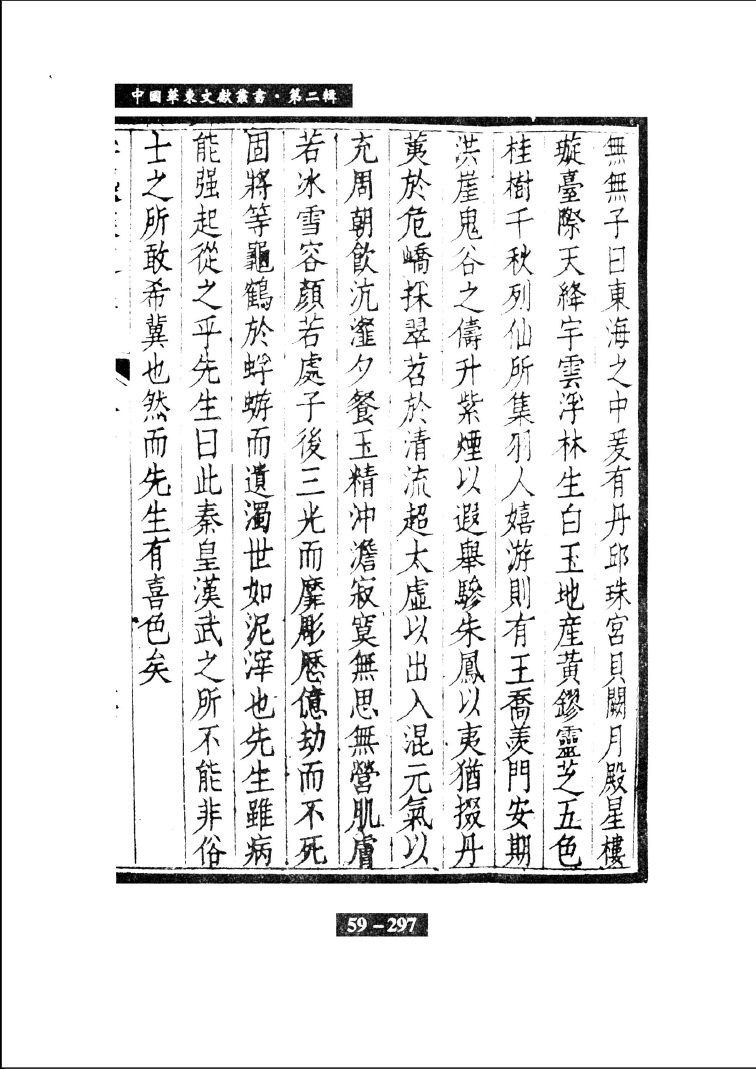 中國華東文獻叢書·第二輯
無無子曰東海之中爰有丹邱珠宮貝闕月殿星樓
璇臺際天絳宇雲浮林生白玉地産黃鏐靈芝五色
桂樹千秋列仙所集羽人嬉游則有王喬羨門安期
洪崖鬼谷之儔升紫煙以遐舉驂朱鳳以夷猶掇丹
荑於危嶠採翠苕於清流超太虛以出入混元氣以
充周朝飲沆瀣夕餐玉精沖澹寂寞無思無營肌膚
若冰雪容顏若處子後三光而靡彫歷億劫而不死
固將等龜鶴於蜉蝣而遺濁世如泥滓也先生雖病
能强起從之乎先生曰此秦皇漢武之所不能非俗
士之所敢希冀也然而先生有喜色矣
59-297